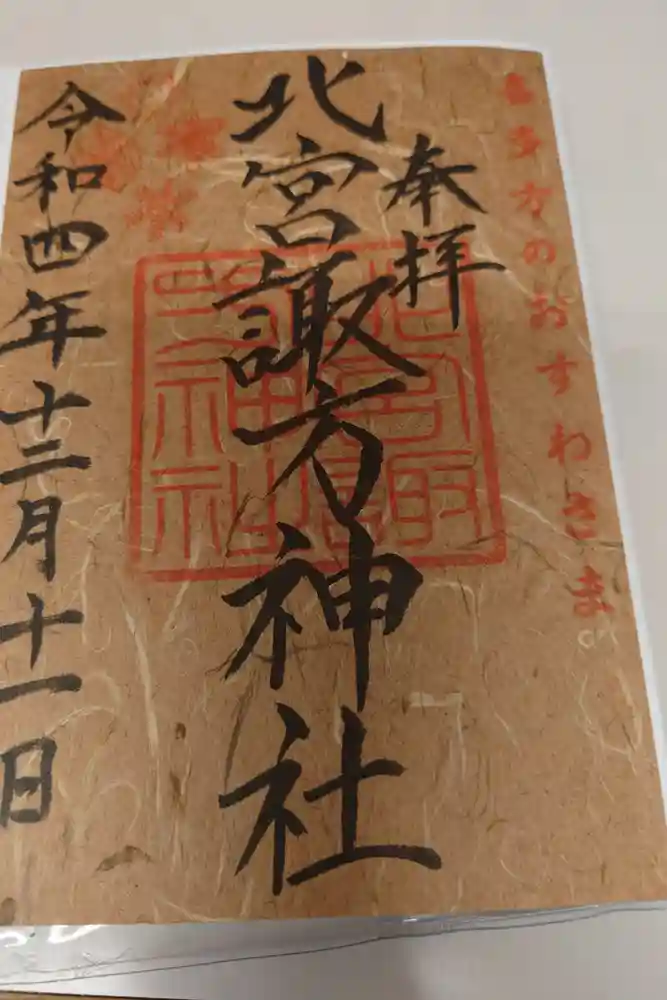 喜多方のおすわさま
奉拝
北宮諏方神社
令和四年十二月十一日